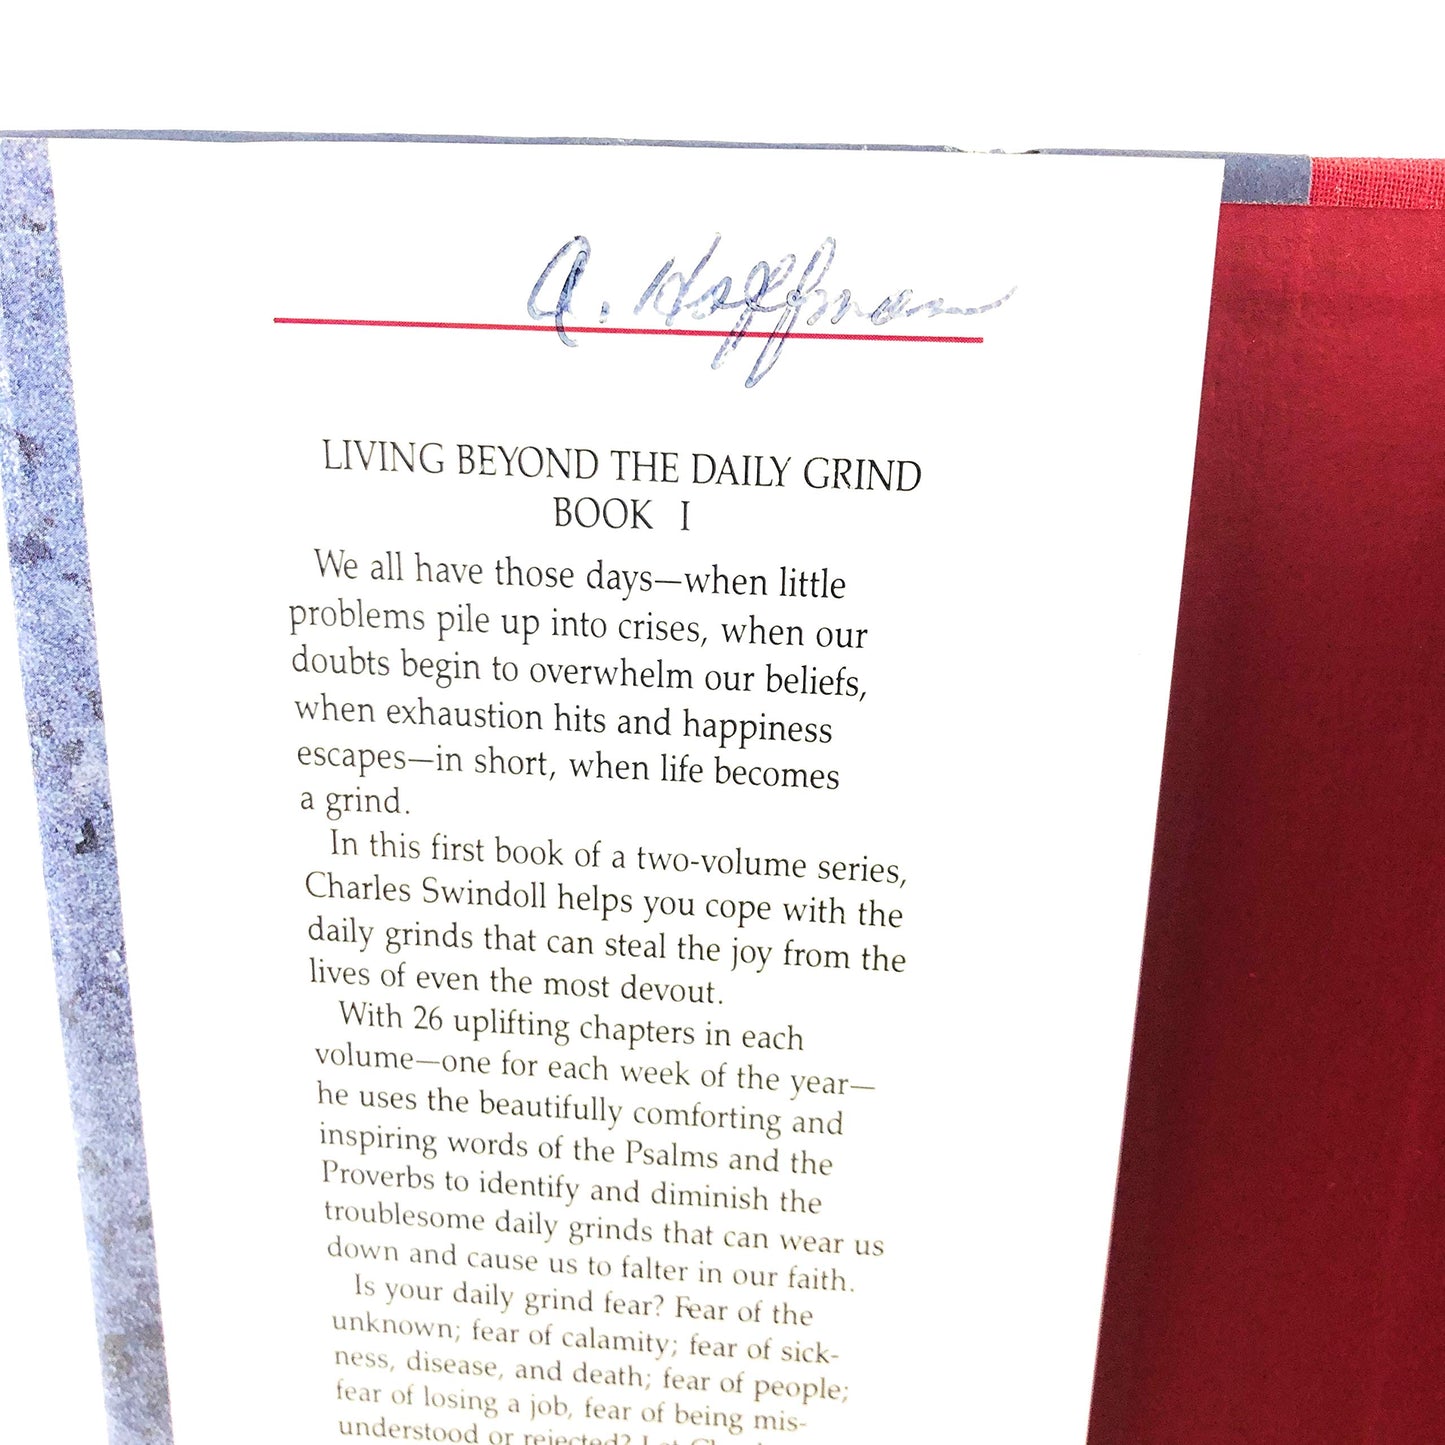 A. Hoffman
LIVING BEYOND THE DAILY GRIND
BOOK I
We all have those days—when little
problems pile up into crises, when our
doubts begin to overwhelm our beliefs,
when exhaustion hits and happiness
escapes—in short, when life becomes
a grind.
In this first book of a two-volume series,
Charles Swindoll helps you cope with the
daily grinds that can steal the joy from the
lives of even the most devout.
With 26 uplifting chapters in each
volume—one for each week of the year—
he uses the beautifully comforting and
inspiring words of the Psalms and the
Proverbs to identify and diminish the
troublesome daily grinds that can wear us
down and cause us to falter in our faith.
Is your daily grind fear? Fear of the
unknown; fear of calamity; fear of sick-
ness, disease, and death; fear of people;
fear of losing a job, fear of being mis-
understood or rejected?